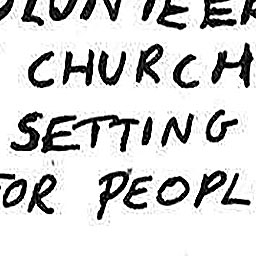 VOLUNTEER
CHURCH
SETTING
FOR PEOPL